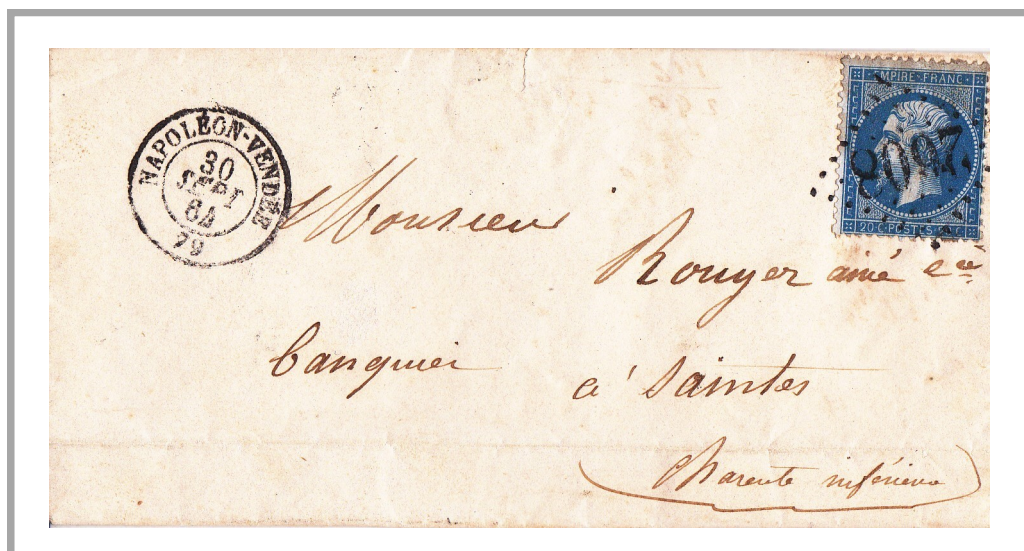 NAPOLÉON-VENDÉE
30
SEPT
64
79
EMPIRE FRANC
2608
20 C POSTES 20 C
Monsieur
Rouyer ainé &
banquier
à Saintes
(Charente inférieure)